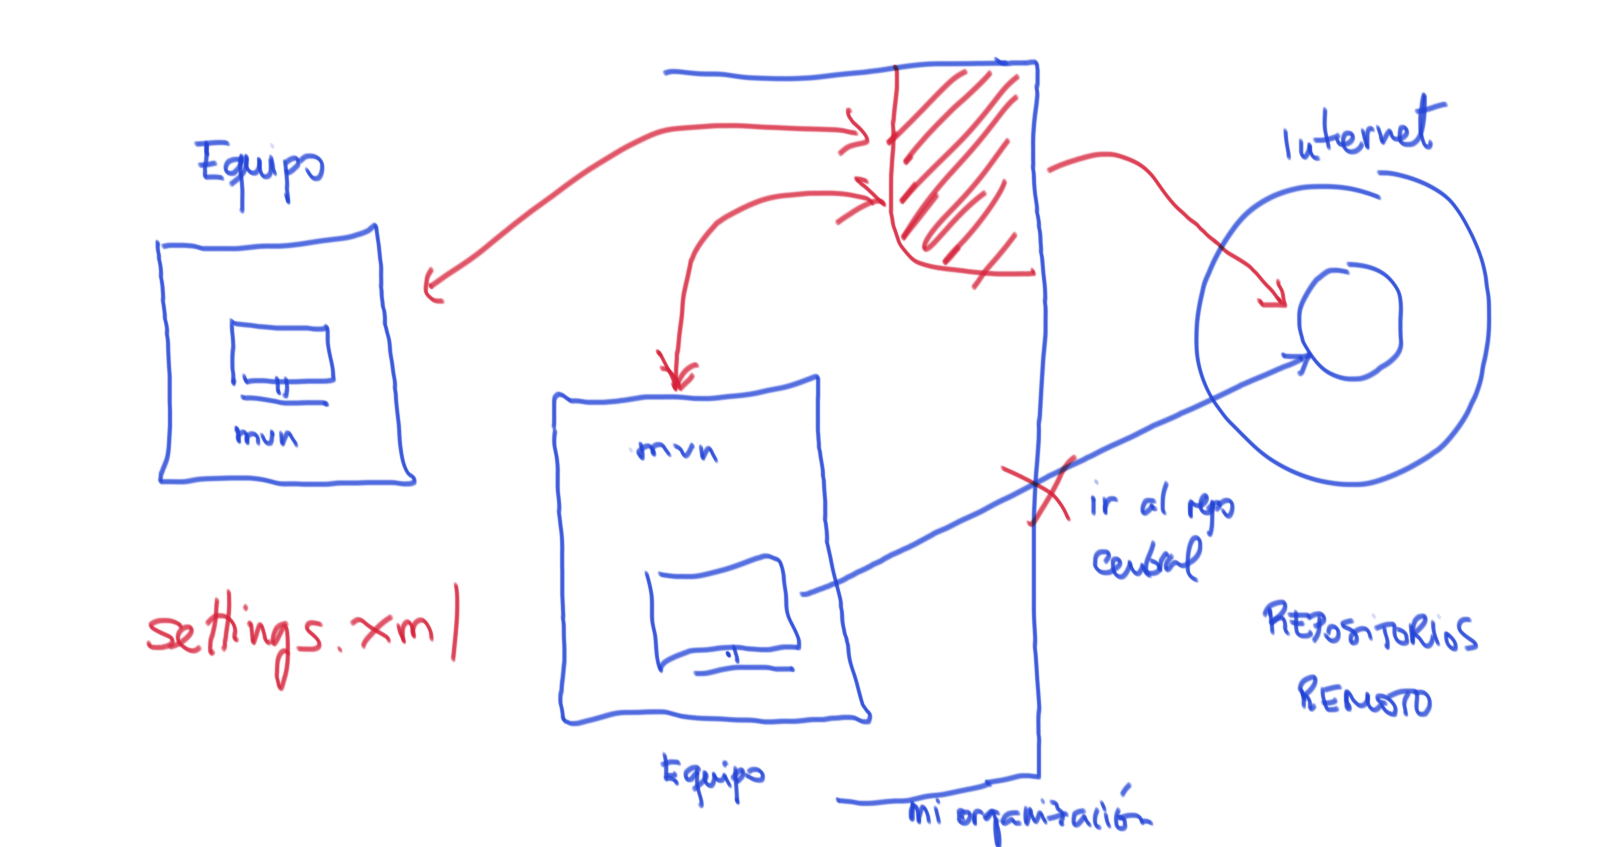 Equipo
mvn
settings.xml
mvn
Equipo
mi organización
Internet
ir al repo
central
REPOSITORIOS
REMOTO